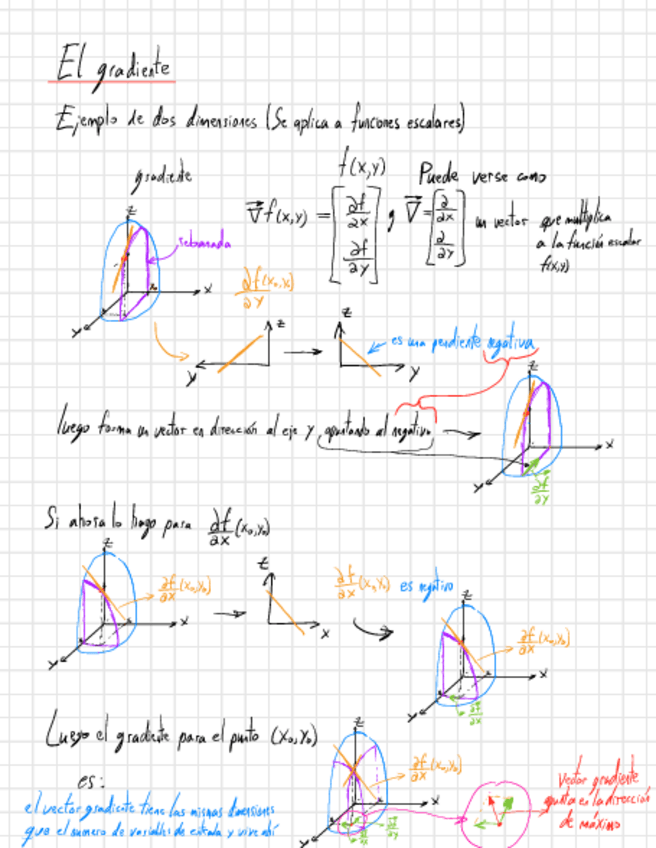 El gradiente
Ejemplo de dos dimensiones (Se aplica a funciones escalares)
gradiente
f(x,y)
Puede verse como
∇f(x,y) = [∂f/∂x ∂f/∂y] y ∇ = [∂/∂x ∂/∂y] un vector que multiplica
a la función escalar
f(x,y)
z
rebanada
x
y
∂f(x₀,y₀)/∂y
z
y
z
y
es una pendiente negativa
luego forma un vector en dirección al eje y apuntando al negativo
z
x
y
∂f/∂y
Si ahora lo hago para ∂f/∂x (x₀,y₀)
z
x
y
∂f/∂x (x₀,y₀)
z
x
∂f/∂x (x₀,y₀) es negativo
z
x
y
∂f/∂x (x₀,y₀)
∂f/∂x
Luego el gradiente para el punto (x₀,y₀)
es:
el vector gradiente tiene las mismas dimensiones
que el numero de variables de entrada y vive ahí
z
x
y
∂f/∂x (x₀,y₀)
∂f/∂y
Vector gradiente
apunta en la dirección
de máximo